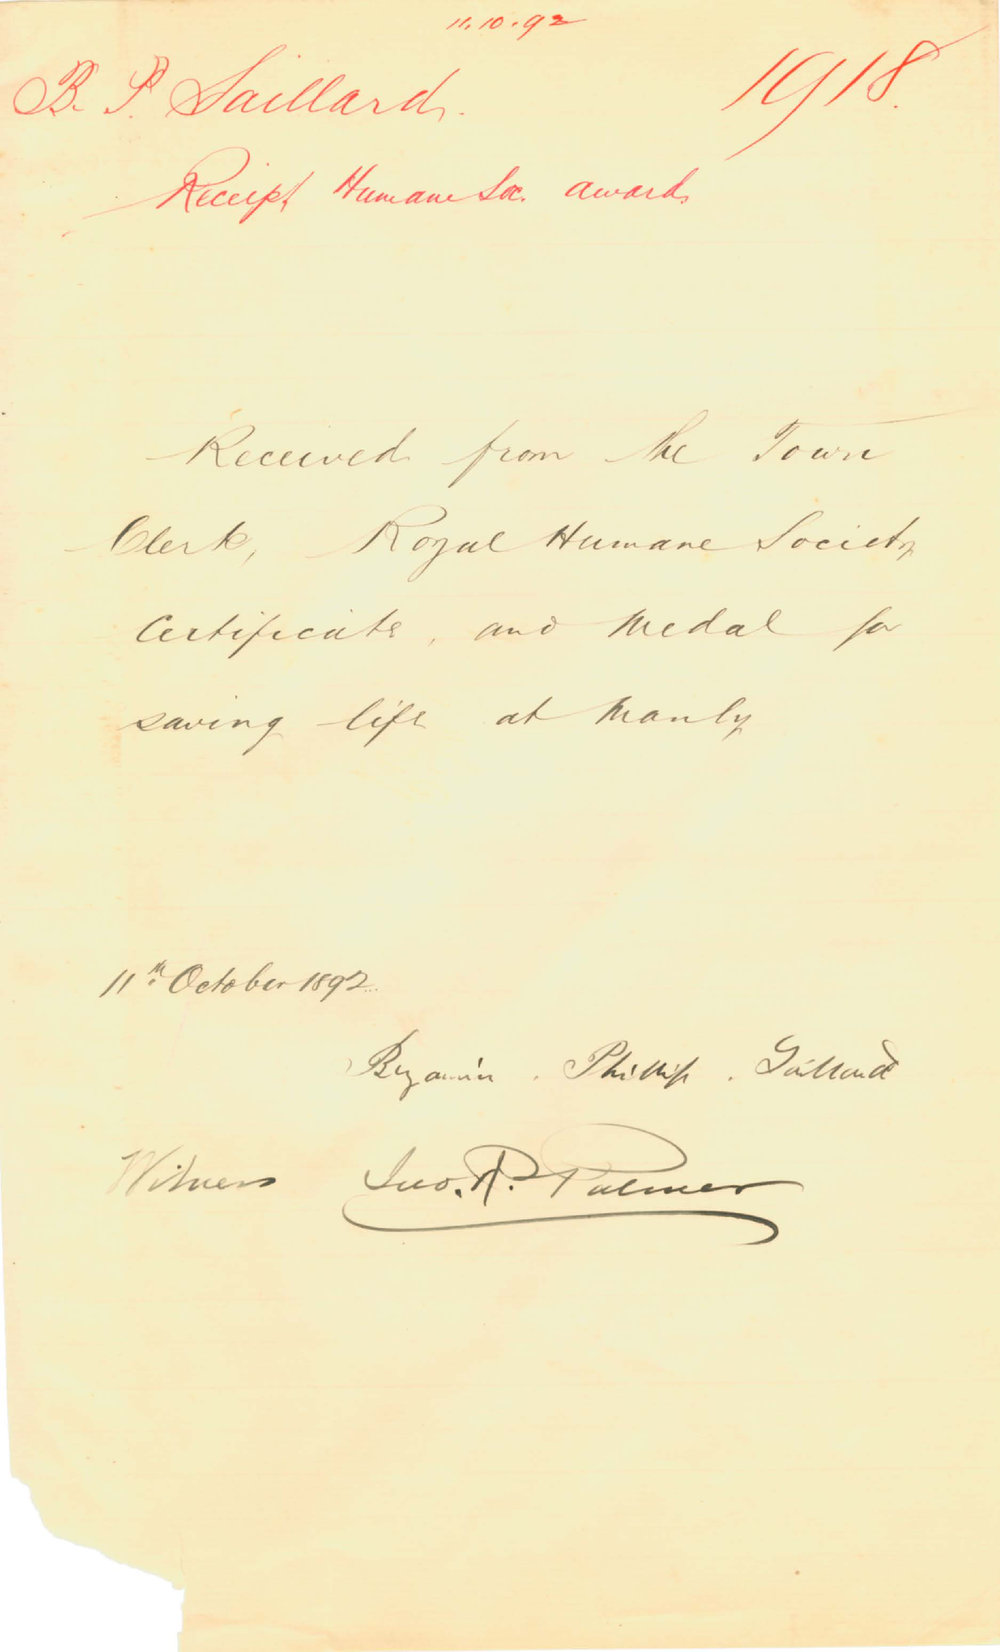 11.10.92
B. P. Gaillard. 1918.
Receipt Humane Soc. award
Received from the Town
Clerk, Royal Humane Society
Certificate, and Medal for
saving life at Manly
11th October 1892.
Benjamin . Phillip . Gaillard
Witness Jno. R. Palmer